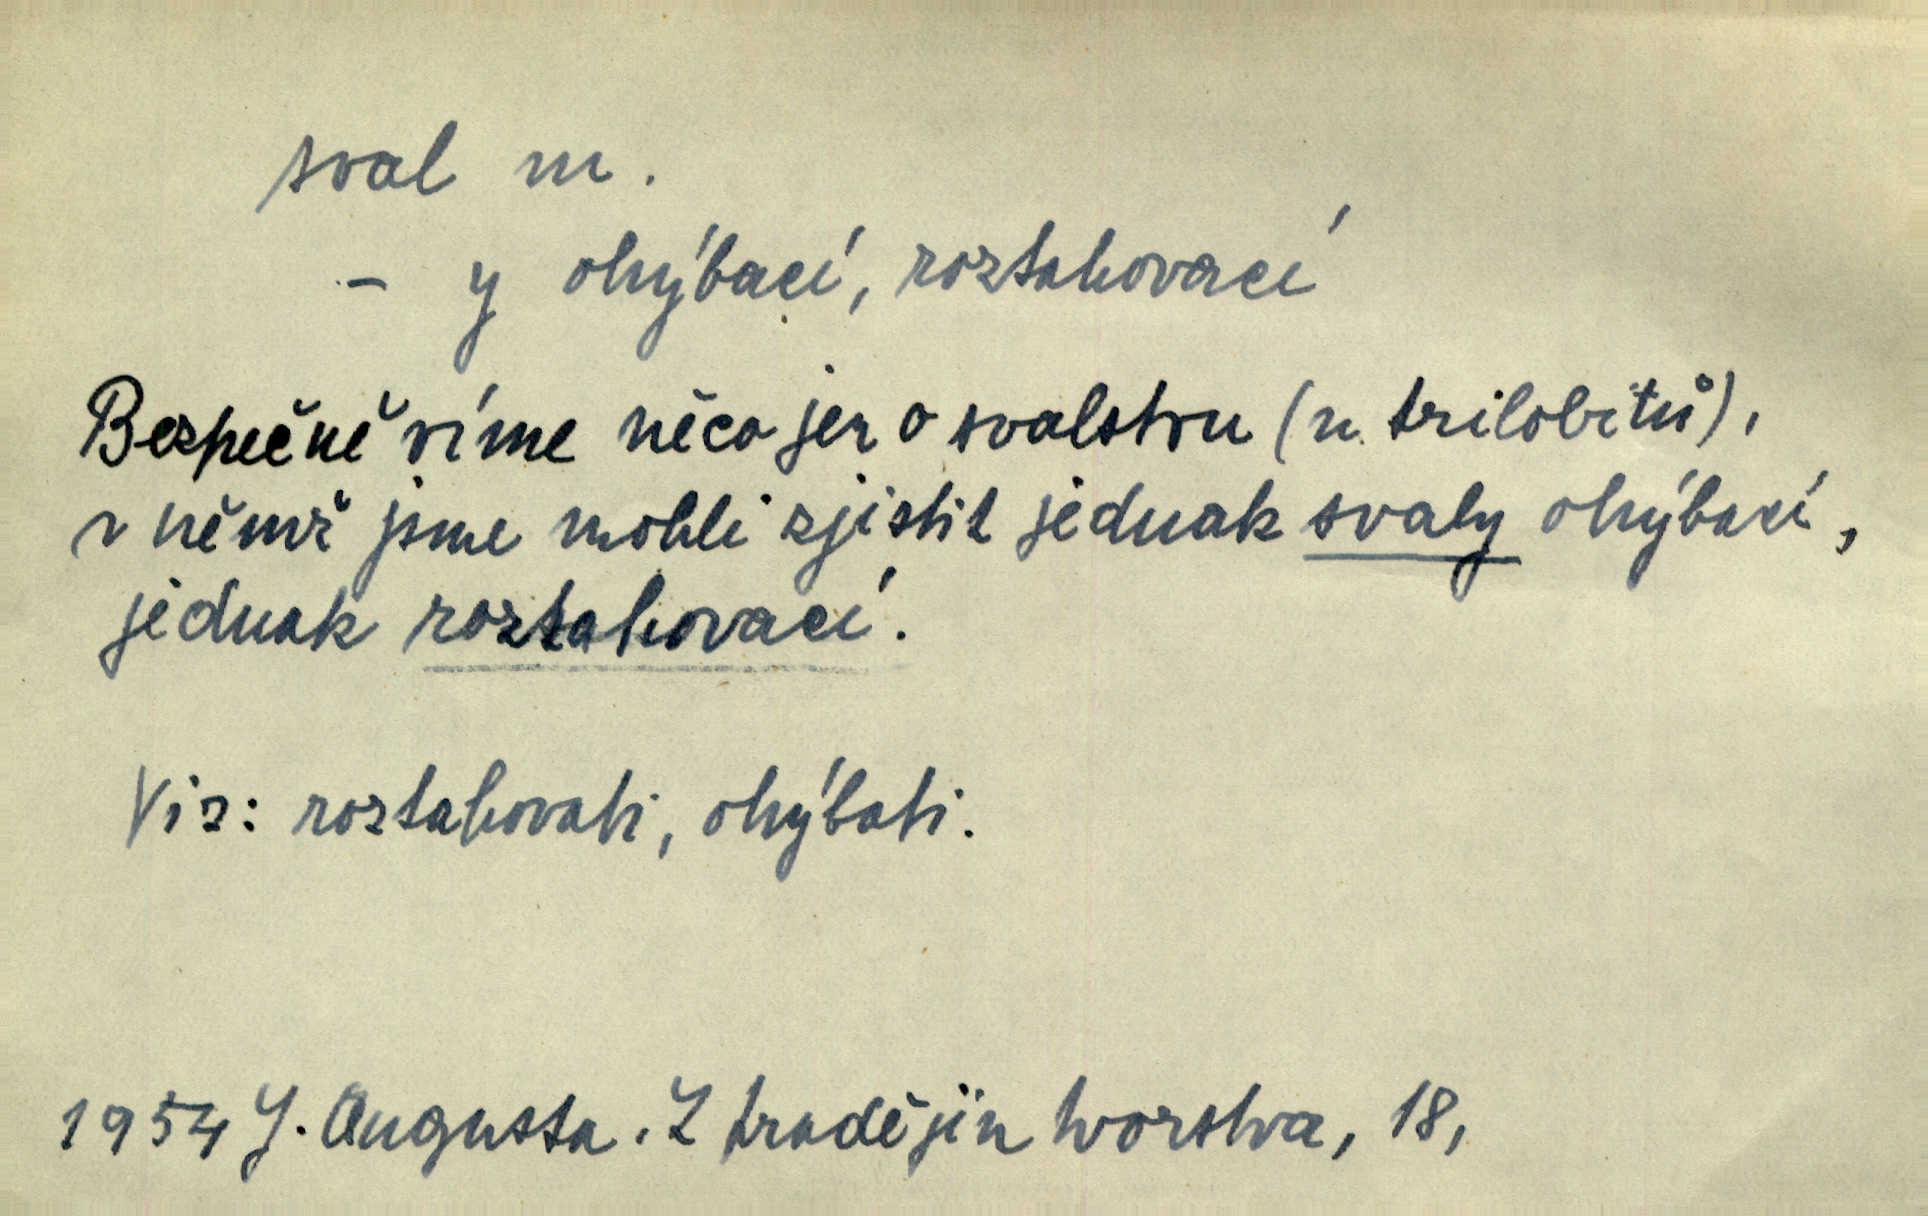 sval m.
- y ohýbací, roztahovací
Bezpečně víme něco jen o svalstvu (u trilobitů),
v němž jsme mohli zjistit jednak svaly ohýbací,
jednak roztahovací.
Viz: roztahovati, ohýbati.
1954 J. Augusta. Z pradějin tvorstva, 18,